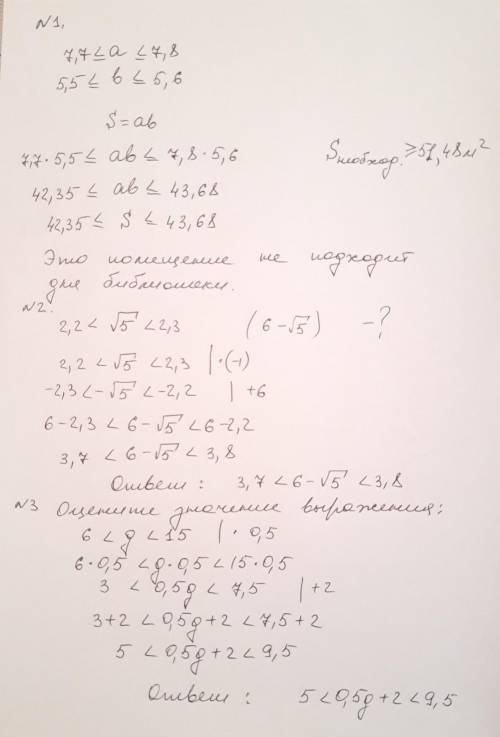 №1.
7,7 ≤ a ≤ 7,8
5,5 ≤ b ≤ 5,6
S = ab
7,7 · 5,5 ≤ ab ≤ 7,8 · 5,6
Sнеобход. ≥ 51,48 м²
42,35 ≤ ab ≤ 43,68
42,35 ≤ S ≤ 43,68
Это помещение не подходит
для библиотеки.
№2.
2,2 < √5 < 2,3 (6 - √5) - ?
2,2 < √5 < 2,3 | · (-1)
-2,3 < -√5 < -2,2 | +6
6 - 2,3 < 6 - √5 < 6 - 2,2
3,7 < 6 - √5 < 3,8
Ответ : 3,7 < 6 - √5 < 3,8
№3 Оцените значение выражения:
6 < g < 15 | · 0,5
6 · 0,5 < g · 0,5 < 15 · 0,5
3 < 0,5g < 7,5 | +2
3+2 < 0,5g + 2 < 7,5 + 2
5 < 0,5g + 2 < 9,5
Ответ : 5 < 0,5g + 2 < 9,5